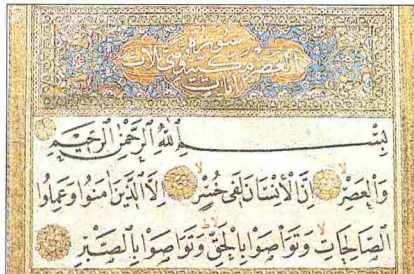 سورة
العصر مكية وهى ثلاث
ايات
بِسْمِ اللهِ الرَّحْمٰنِ الرَّحِيمِ
وَالْعَصْرِ اِنَّ الْاِنْسَانَ لَفِى خُسْرٍ اِلَّا الَّذِينَ اٰمَنُوا وَعَمِلُوا
الصَّالِحَاتِ وَتَوَاصَوْا بِالْحَقِّ وَتَوَاصَوْا بِالصَّبْرِ